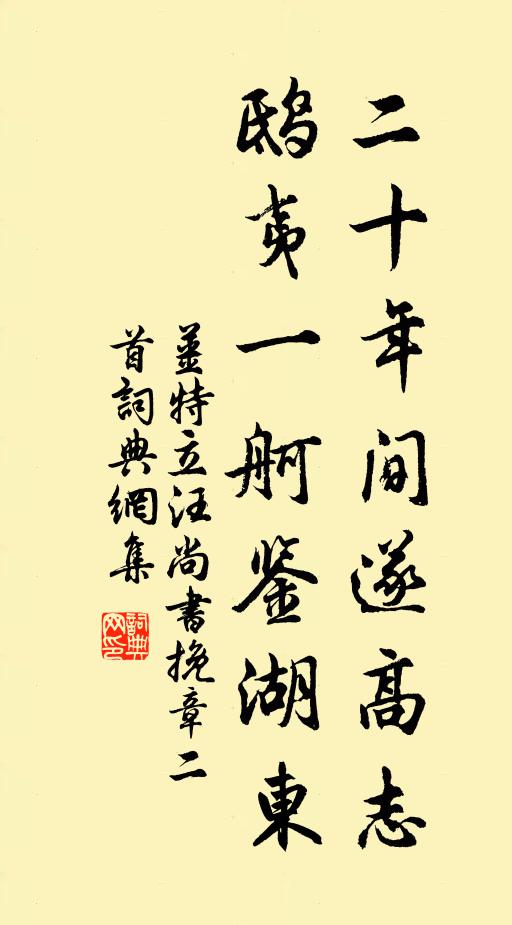 二十年間遂高志
鴟夷一舸鉴湖東
姜特立汪尚書挽章二
首詞典網集
詞典网印